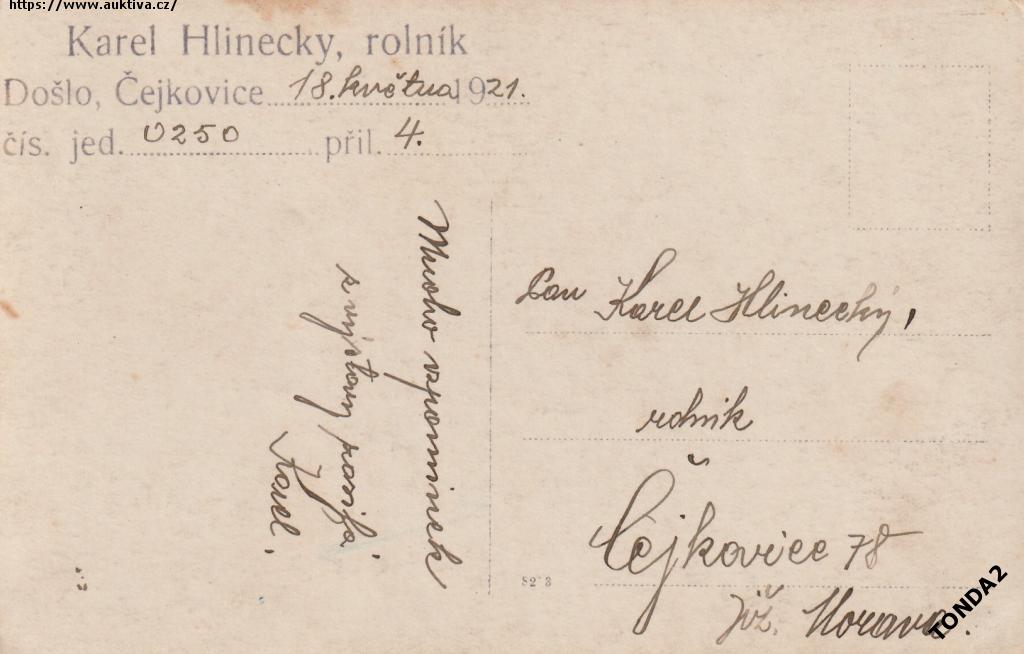 https://www.auktiva.cz/
Karel Hlinecky, rolník
Došlo, Čejkovice 18. května 1921.
čís. jed. 0250 příl. 4.
Mnoho vzpomínek
z výstavy posílá
Karel.
Pan Karel Hlinecký,
rolník
Čejkovice 78
Již. Morava.
82*3
TONDA2